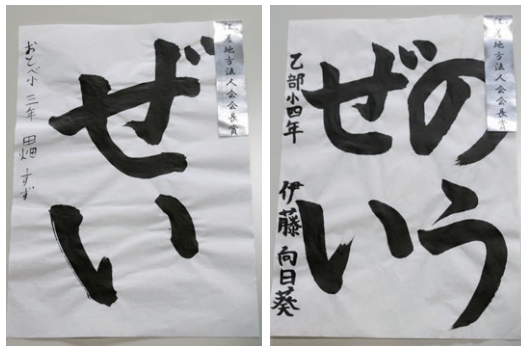 江差地方法人会会長賞
ぜい
おとべ小 三年 田畑 すず
江差地方法人会会長賞
のう
ぜい
乙部小四年 伊藤 向日葵